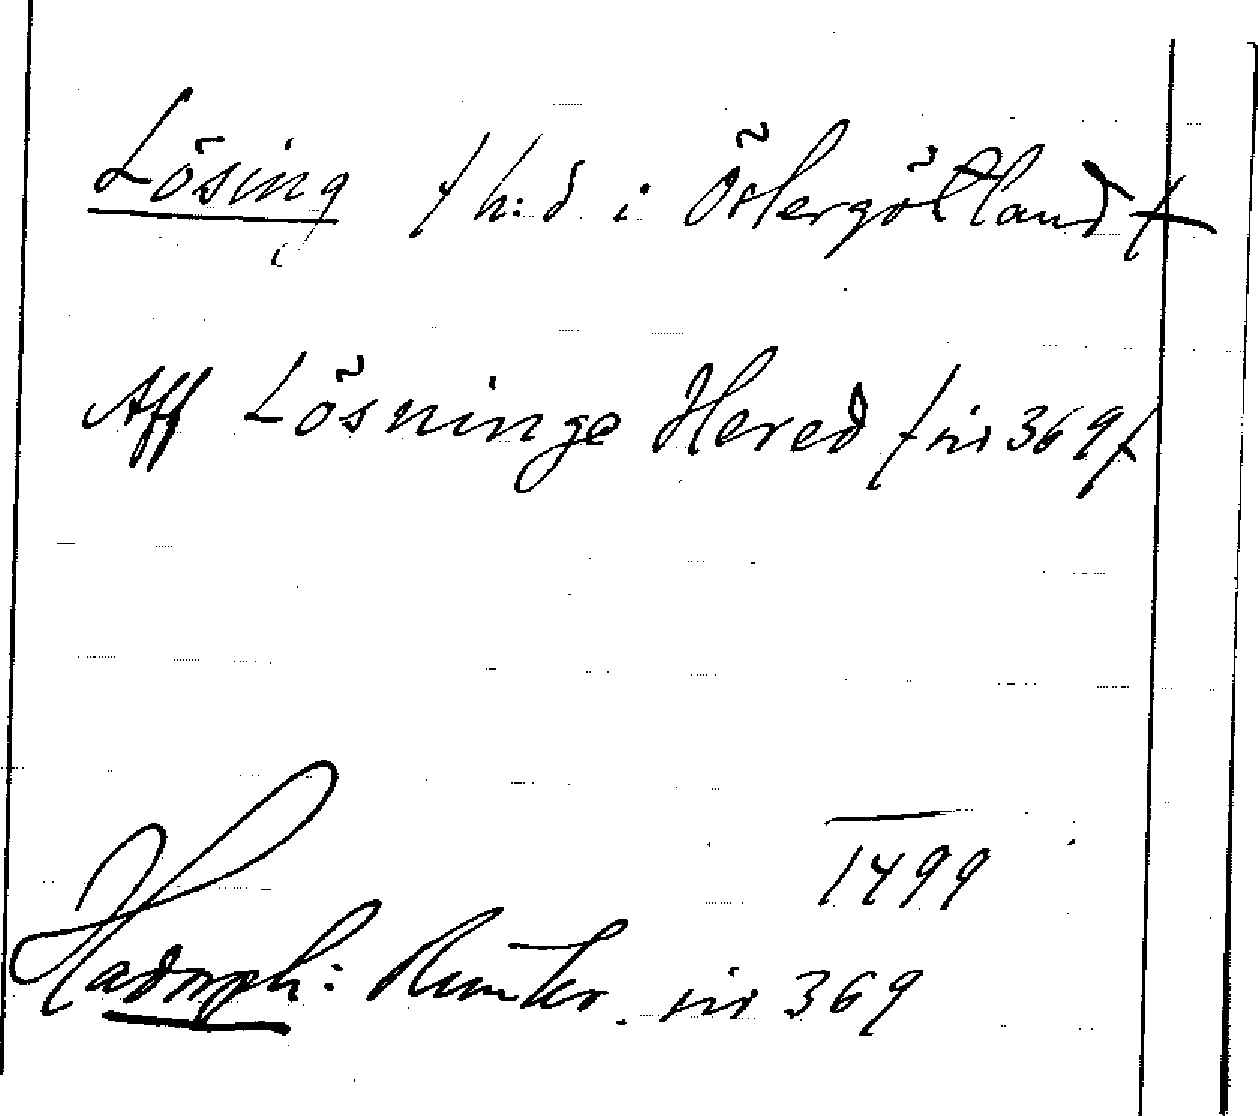 Lösing / h:d i Östergötland /
Aff Lösninge Hered / sid 369 /
1499
Hadorph: Rimkr. sid 369